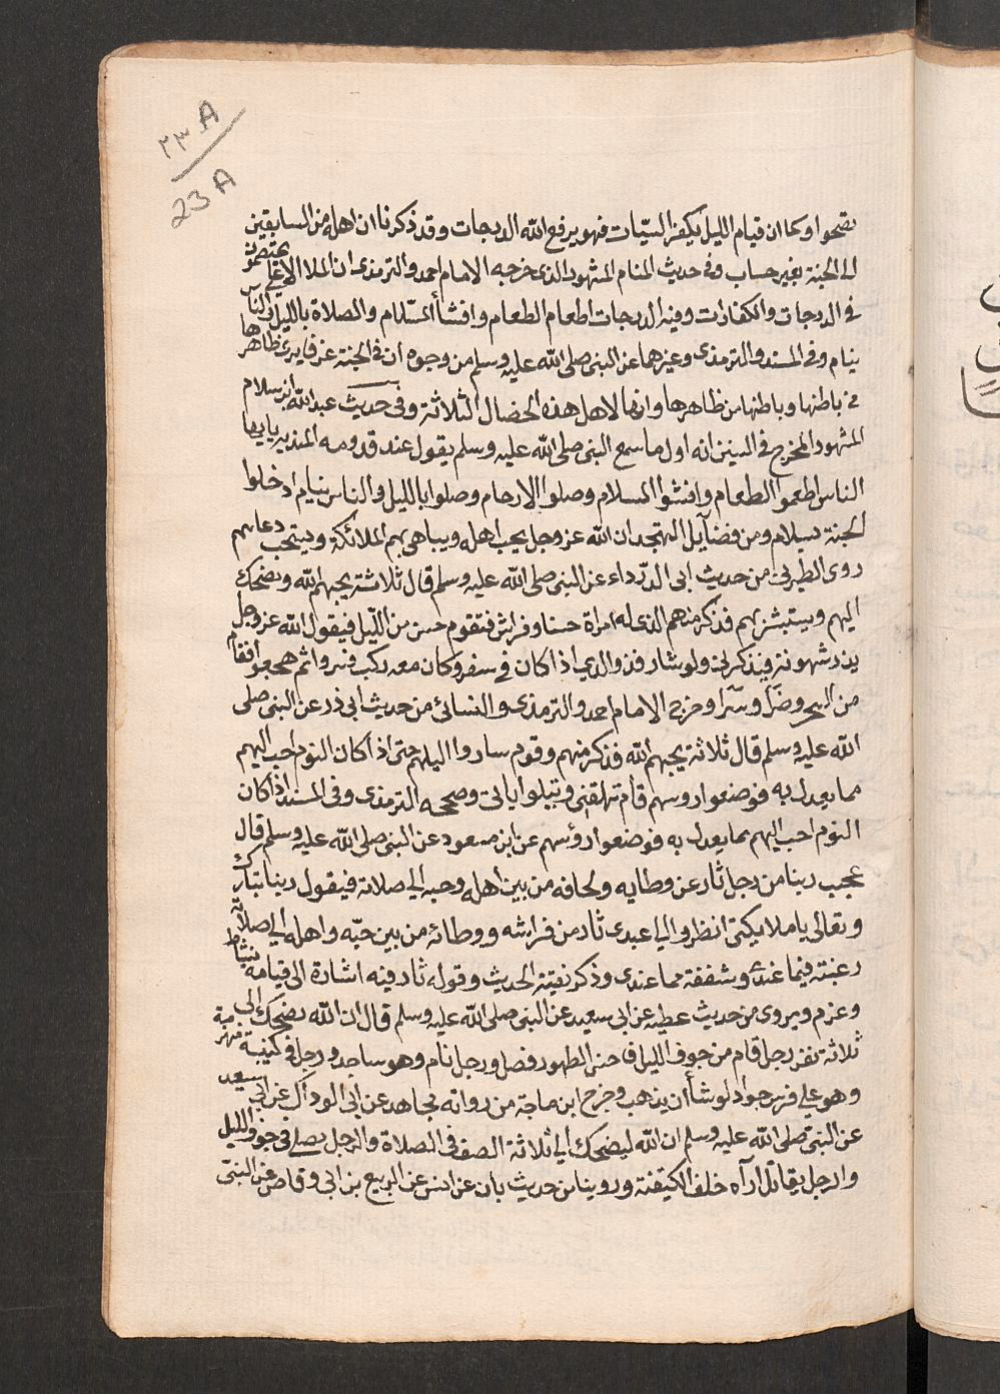 ٢٣ A
23 A
نصحوا وكما ان قيام الليل يكفر السيّات فهو يرفع الله الدرجات وقد ذكرنا ان اهله من السابقين
الى الجنة بغير حساب وفي حديث المنام المشهور الذى خرجه الامام احمد والترمذى ان الملا الاعلى يختصمون
في الدرجات والكفارات وفيه الدرجات اطعام الطعام وافشأ السّلام والصلاة بالليل والناس
ينام وفي المسند والترمذى وغيرهما عن النبى صلى الله عليه وسلم من وجوه ان في الجنة غرفا يرى ظاهرها
من باطنها وباطنها من ظاهرها وانها لاهل هذه الخصال الثلاثة وفي حديث عبد الله ابن سلام
المشهور المخرج في السنن انه اول ما سمع النبى صلى الله عليه وسلم يقول عند قدومه المدينه يا ايها
الناس اطعموا الطعام وافشوا السلام وصلوا الارحام وصلوا بالليل والناس ينيام ادخلوا
الجنة بسلام ومن فضايل التهجد ان الله عز وجل يحب اهله ويباهى بهم الملائكة ويستجب دعاءهم
روى الطبرنى من حديث ابى الدرّداء عن النبى صلى الله عليه وسلم قال ثلاثة يحبهم الله ويضحك
اليهم ويستبشر بهم فذكر منهم الذى له امراة حسنا وفراش فتقوم حسن من اللّيل فيقول الله عز وجل
يذر شهوته فيذكرنى ولو شار قذ والذي اذا كان في سفر وكان معه ركب فسروا ثم هجعوا فقام
من السحر وضرّا وسرّا وخرج الامام احمد والترمذى والنسائى من حديث ابى ذر عن النبى صلى
الله عليه وسلم قال ثلاثة يحبهم الله فذكر منهم وقوم ساروا اليلهم حتى اذا كان النوم احب اليهم
مما يعدل به فوضعوا روسهم قام تملقنى ويتلوا اياتى وصححه الترمذى وفي المسند اذا كان
النوم احب اليهم مما يعدل به فوضعوا رؤسهم عن ابن مسعود عن النبى صلى الله عليه وسلم قال
عجب ربنا من رجل ثار عن وطايه ولحافه من بين اهله وحبه الى صلاته فيقول ربنا تبارك
وتعالى يا ملايكتى انظروا اليا عبدى ثار من فراشه ووطائه من بين حبّه واهله الى صلاته
رغبته فيما عندى وشفقة مما عندى وذكر بقية الحديث وقوله ثار فيه اشارة الى قيامه بنشاط
وعزم ويروى من حديث عطيه عن ابى سعيد عن النبى صلى الله عليه وسلم قال ان الله يضحك الى
ثلاثة نفر رجل قام من جوف الليل فا حسن الطهور فصل ورجل نام وهو ساجد ورجل في كتيبة منهزمة
وهو على فرس جواد لو شأ ان يذهب وخرج ابن ماجة من رواته مجاهد عن ابى الوداك عن ابى سعيد
عن النبىّ صلى الله عليه وسلم ان الله ليضحك اليا ثلاثة الصف في الصلاة والرجل يصلى في جوف الليل
والرجل يقاتل اراه خلف الكتيفة وروينا من حديث بان عن انس عن الربيع بن ابى وقاص عن النبىّ